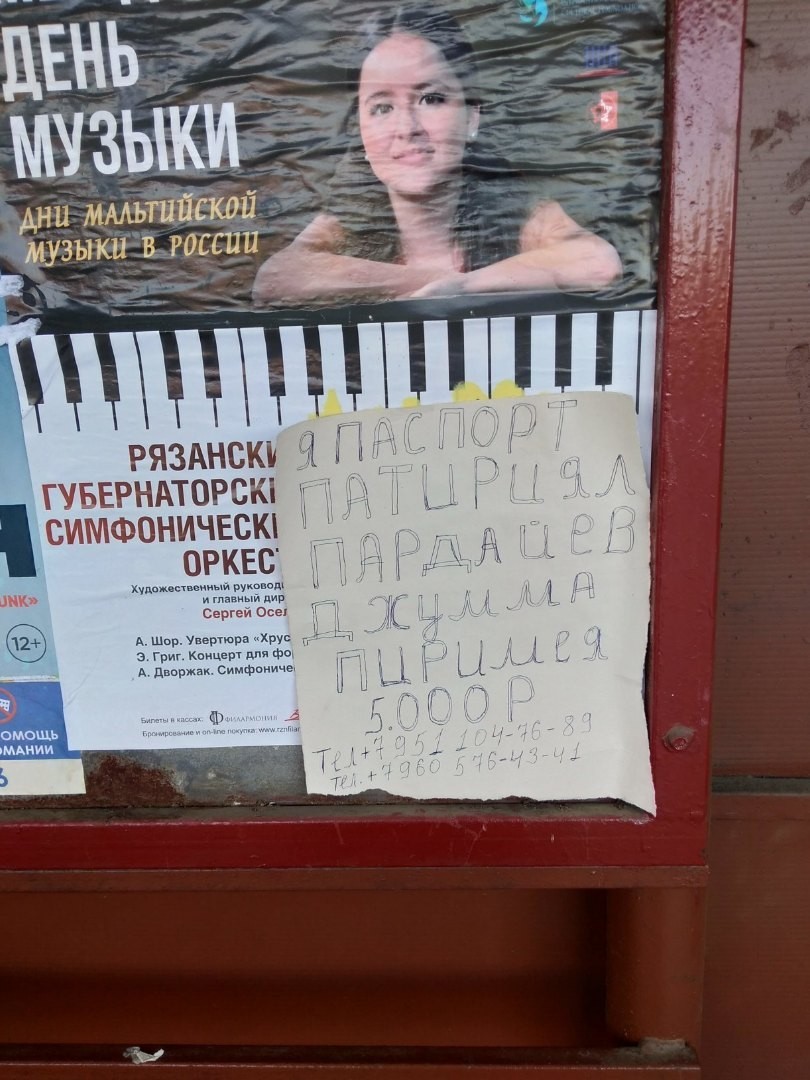 ДЕНЬ
МУЗЫКИ
ДНИ МАЛЬТИЙСКОЙ
МУЗЫКИ В РОССИИ
РЯЗАНСКИ
ГУБЕРНАТОРСКИ
СИМФОНИЧЕСКИ
ОРКЕСТ
Художественный руковод
и главный дир
Сергей Осел
А. Шор. Увертюра «Хрус
Э. Григ. Концерт для фор
А. Дворжак. Симфониче
Билеты в кассах: ФИЛАРМОНИЯ
Бронирование и on-line покупка: www.rznfilar
UNK»
12+
ПОМОЩЬ
ОМАНИИ
Я ПАСПОРТ
ПАТИРИЯЛ
ПАРДАЙЕВ
ДЖУММА
ПИРИМЕЯ
5.000Р
Тел+7951 104-76-89
Тел.+7960 576-43-41